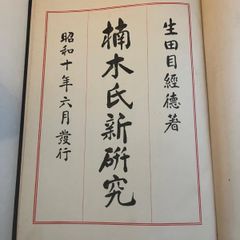 生田目經德著
楠木氏新硏究
昭和十年六月發行